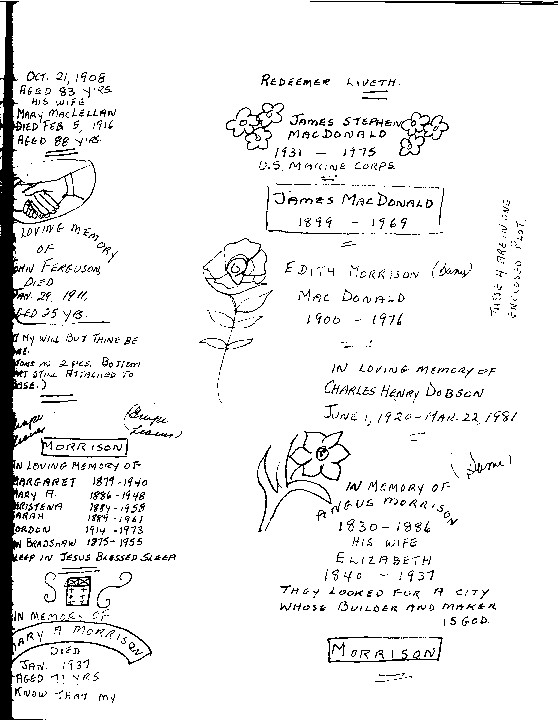 OCT. 21, 1908
AGED 83 YRS.
HIS WIFE
MARY MACLELLAN
DIED FEB 5, 1916
AGED 88 YRS.
LOVING MEMORY
OF
FERGUSON
DIED
29, 1911,
25 YRS.
MY WILL BUT THINE BE
2 PCS. BOTTOM
STILL ATTACHED TO
(Grape Leaves)
MORRISON
IN LOVING MEMORY OF
MARGARET 1879-1940
MARY A. 1886-1948
1884-1958
SARAH 1889-1961
GORDON 1914-1973
BRADSHAW 1875-1955
SLEEP IN JESUS BLESSED SLEEP
IN MEMORY OF
MARY A MORRISON
DIED
JAN. 1937
AGED 71 YRS
KNOW THAT MY
REDEEMER LIVETH.
JAMES STEPHEN
MACDONALD
1931 - 1975
U.S. MARINE CORPS.
JAMES MACDONALD
1899 - 1969
EDITH MORRISON
MAC DONALD
1900 - 1976
THESE 4 ARE IN ONE
ENCLOSED PLOT.
IN LOVING MEMORY OF
CHARLES HENRY DOBSON
JUNE 1, 1920-MAR. 22, 1981
IN MEMORY OF
ANGUS MORRISON
1830-1886
HIS WIFE
ELIZABETH
1840 - 1937
THEY LOOKED FOR A CITY
WHOSE BUILDER AND MAKER
IS GOD.
MORRISON